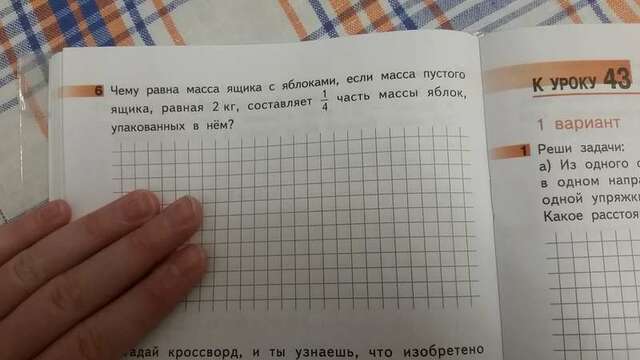 6 Чему равна масса ящика с яблоками, если масса пустого
ящика, равная 2 кг, составляет 1/4 часть массы яблок,
упакованных в нём?
адай кроссворд, и ты узнаешь, что изобретено
К УРОКУ 43
1 вариант
1 Реши задачи:
а) Из одного
в одном напр
одной упряжк
Какое расстоя